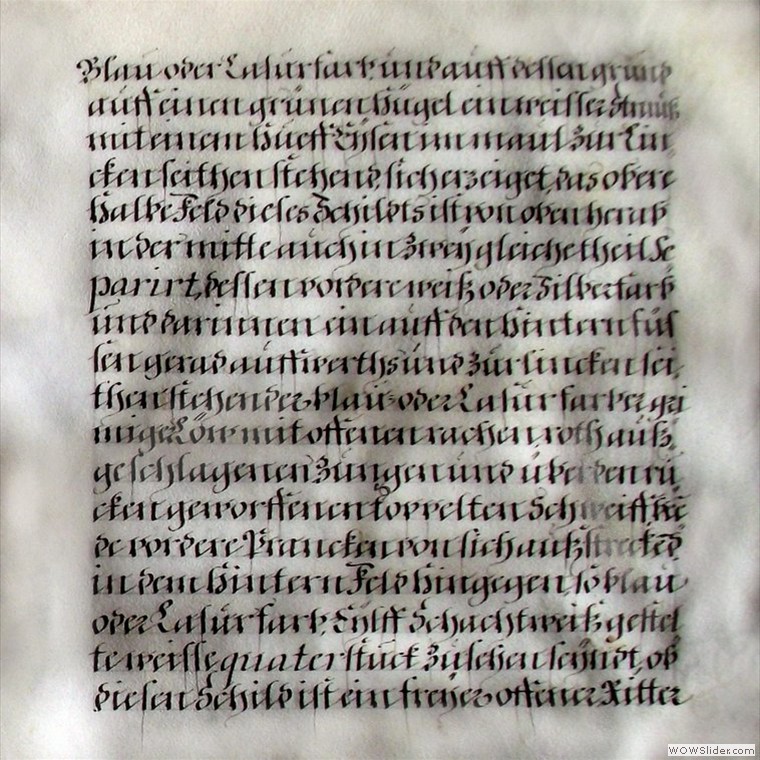 Blau oder Lasurfarb, und auff dessen grund
auff einen grünen Hügel ein weisser Strauß
mit einem Hueff Eÿsen im maul zur Lin
cken seithen stehend, sich erzeiget, das obere
halbe Feld dieses Schildts ist von oben herab
in der mitte auch in zweÿ gleiche theil Se
parirt, dessen vordere weiß oder Silberfarb
und darinnen ein auff den hintern füs
sen gerad auffwerths und zur lincken sei,
then stehender, blau oder Lasurfarber gri
miger Löw mit offenen rachen, roth auß,
geschlagenen Zungen und über den rü
cken geworffenen doppelten Schweiff bee
de vordere Prancken von sich außstreckend,
in dem Hintern Feld hingegen, so blau
oder Lasurfarb, Eÿlff Schachtweiß gestel
te weisse quaterstuck zu sehen seÿndt, ob
diesen Schild ist ein freÿer offener Ritter
WOWSlider.com